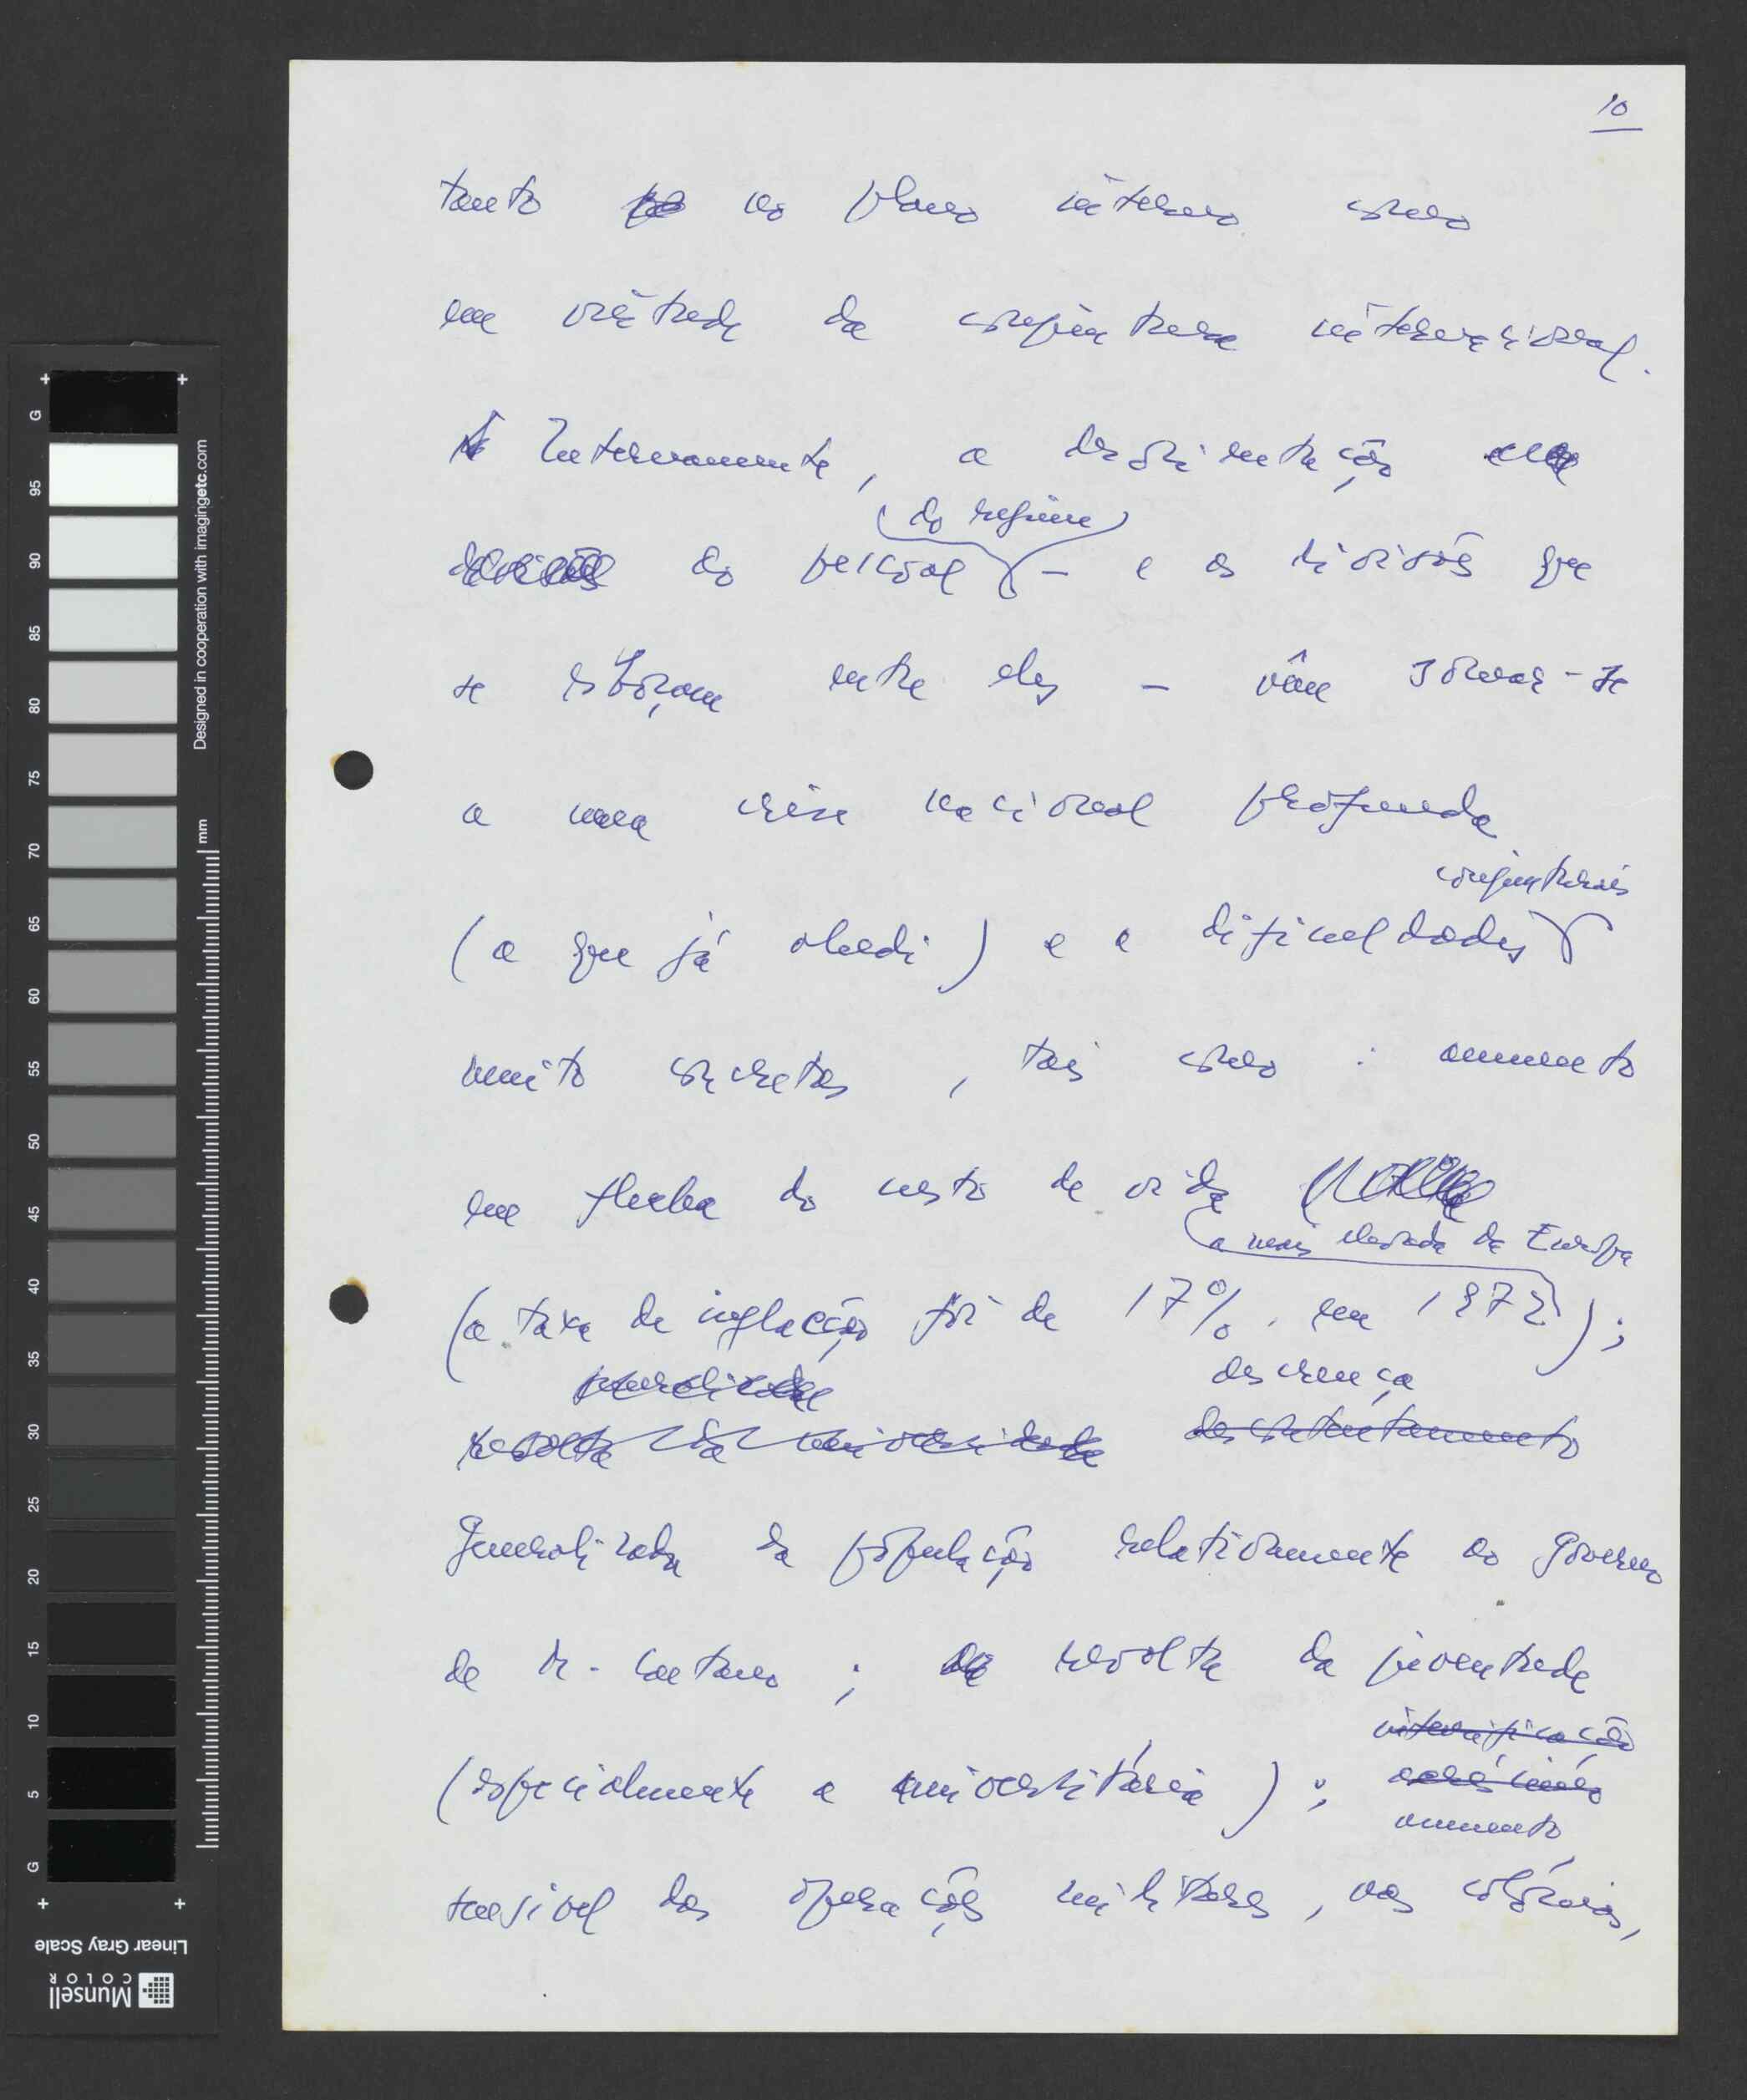 10
tanto no plano interno como
em virtude da conjuntura internacional.
Internamente, a desorientação
do pessoal (do regime) – e as divisões que
se esboçam entre eles – vêm somar-se
a uma crise nacional profunda
conjunturais
(a que já aludi) e a dificuldades
muito concretas, tais como: aumento
em flecha do custo de vida
a mais elevada da Europa
(a taxa de inflacção foi de 17%, em 1972);
generalizada
descrença
revolta da universidade descontentamento
generalizada da população relativamente ao Governo
de M. Caetano; revolta da juventude
intensificação
(especialmente a universitária); acréscimo
aumento
sensível das operações militares, nas colónias,
G 95 90 85 80 75 70 65 60 55 50 45 40 35 30 25 20 15 10 5 G
Designed in cooperation with imagingetc.com
mm
Linear Gray Scale
Munsell
COLOR